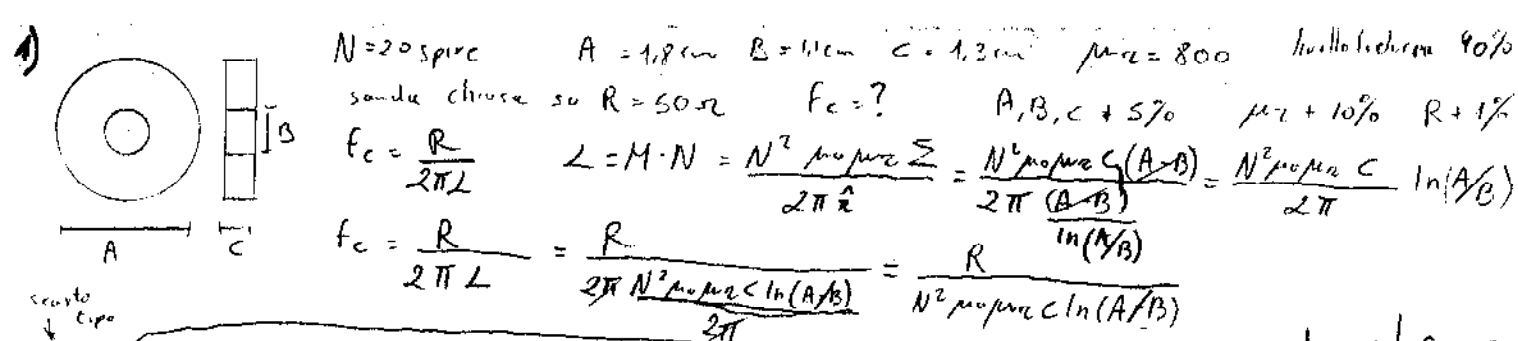 1) N=20 spire A = 1,8 cm B = 1,1 cm C = 1,3 cm μr = 800 livello fiducia 90%
sonda chiusa su R = 50 Ω Fc = ? A, B, C ± 5% μr ± 10% R ± 1%
B
fc = R / 2πL L = M·N = N² μ0 μr Σ / 2π r̂ = N² μ0 μr C (A-B) / 2π (A-B)/ln(A/B) = N² μ0 μr C / 2π ln(A/B)
A C
fc = R / 2πL = R / 2π N² μ0 μr C ln(A/B) / 2π = R / N² μ0 μr C ln(A/B)
scarto
tipo